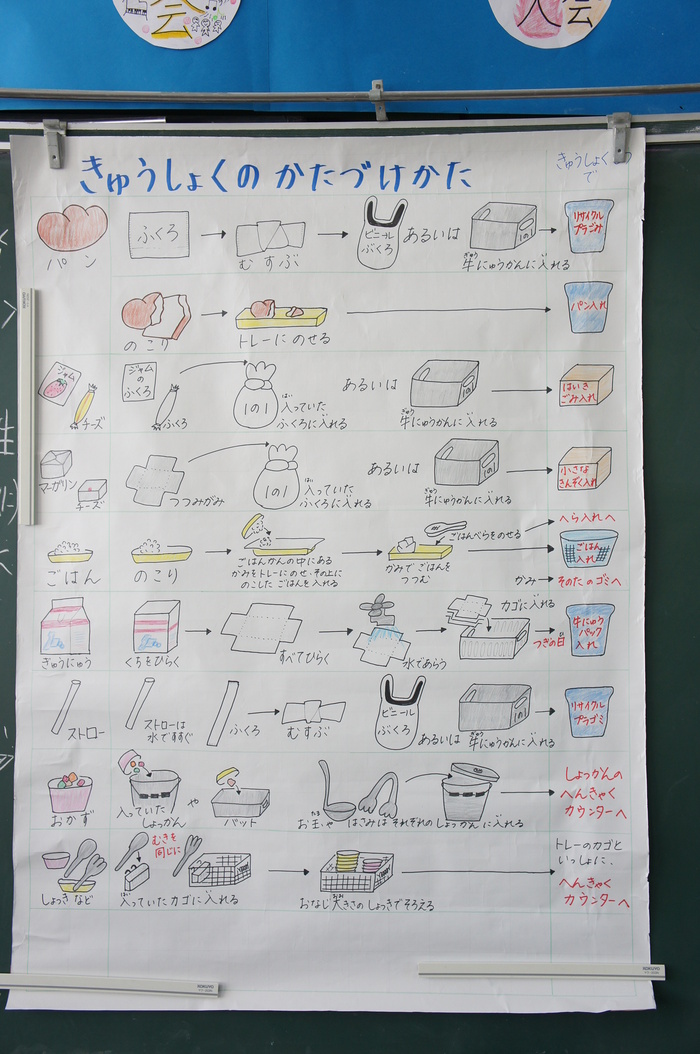 会
会
きゅうしょくの かたづけかた
きゅうしょく
で
パン
ふくろ
むすぶ
ビニール
ぶくろ
あるいは
1の1
ぎゅう
牛にゅうかんに入れる
リサイクル
プラごみ
のこり
トレーにのせる
パン入れ
ジャム
チーズ
ジャム
の
ふくろ
ふくろ
1の1
はい
入っていた
ふくろに入れる
あるいは
ぎゅう
牛にゅうかんに入れる
はいき
ごみ入れ
マーガリン
チーズ
つつみがみ
1の1
はい
入っていた
ふくろに入れる
あるいは
ぎゅう
牛にゅうかんに入れる
小さな
ざんぞく入れ
ごはん
のこり
ごはんかんの中にある
かみをトレーにのせ、その上に
のこした ごはんを入れる
かみでごはんを
つつむ
ごはんべらをのせる
へら入れへ
ごはん
入れ
かみ
そのたのゴミへ
ぎゅうにゅう
くちをひらく
すべてひらく
水であらう
カゴに入れる
つぎの日
牛にゅう
パック
入れ
ストロー
ストローは
水ですすぐ
ふくろ
むすぶ
ビニール
ぶくろ
あるいは
1の1
ぎゅう
牛にゅうかんに入れる
リサイクル
プラゴミ
おかず
入っていた
しょっかん
や
バット
たま
お玉や
はさみは それぞれの しょっかんに入れる
しょっかんの
へんきゃく
カウンターへ
しょっきなど
むきを
同じに
はい
入っていたカゴに入れる
おお
おなじ大きさの しょっきでそろえる
トレーのカゴと
いっしょに、
へんきゃく
カウンターへ
KOKUYO
KOKUYO